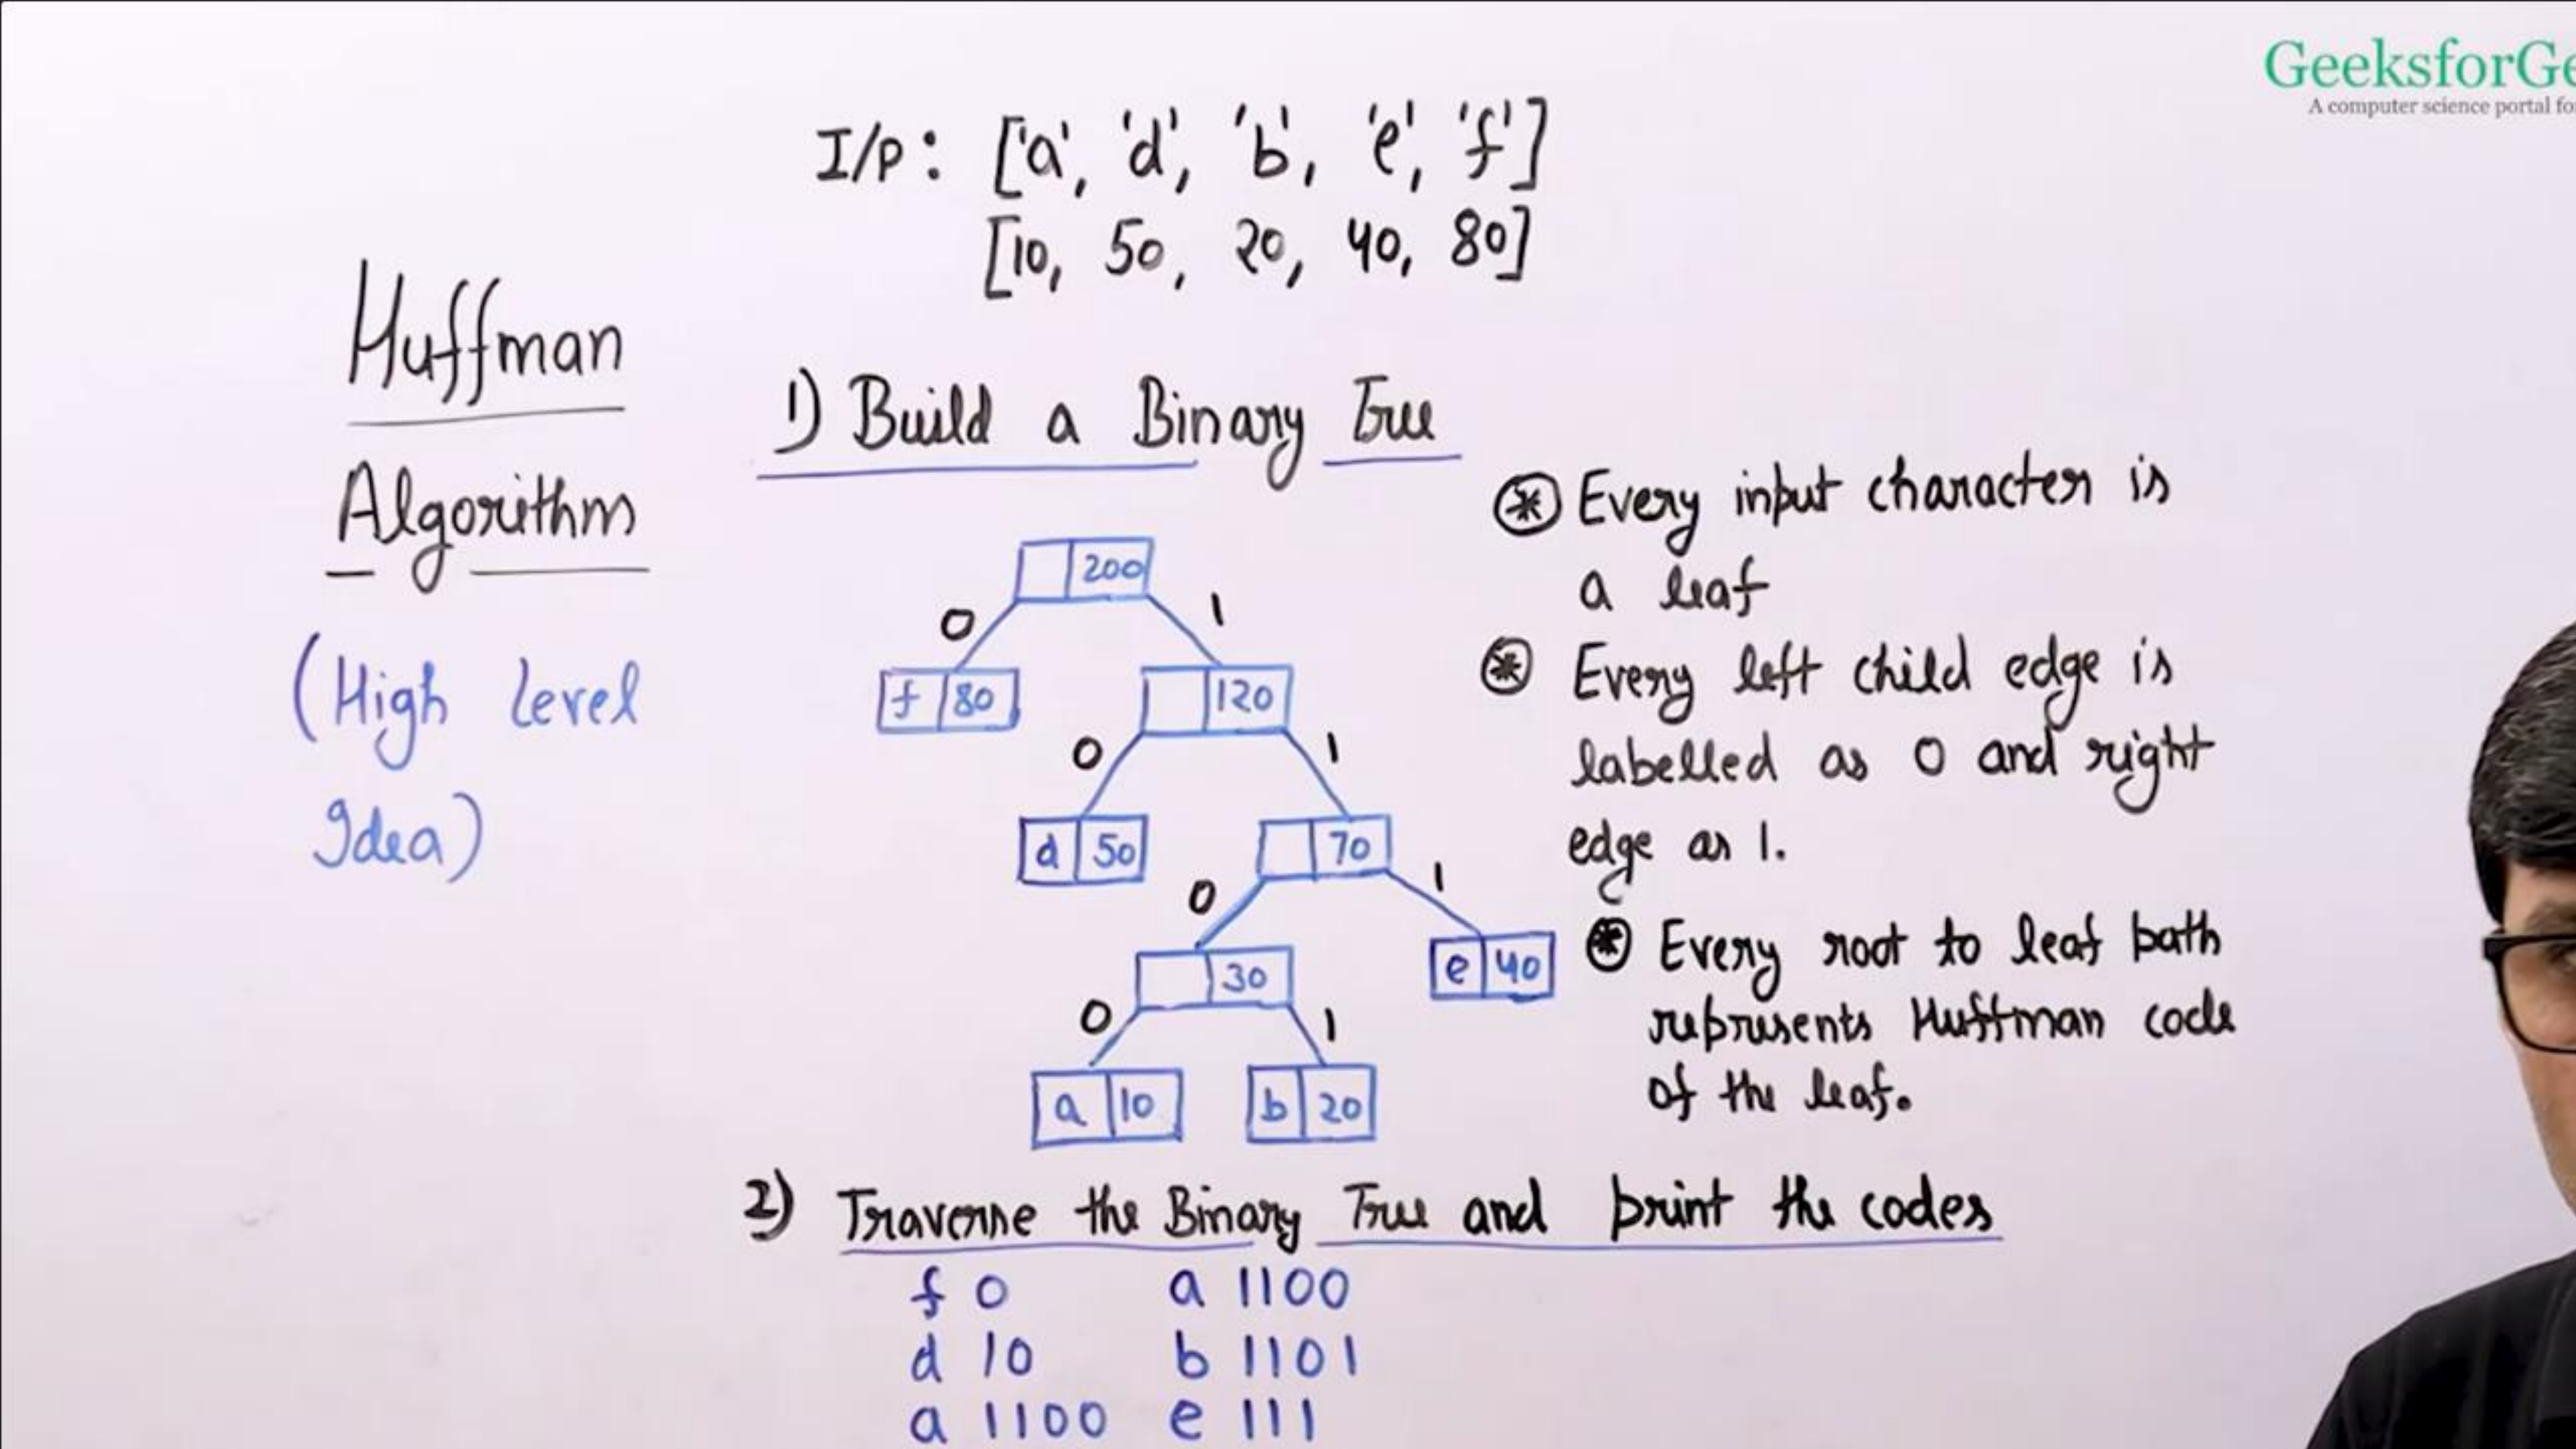 GeeksforGe
A computer science portal fo
I/P: ['a', 'd', 'b', 'e', 'f']
[10, 50, 20, 40, 80]
Huffman
Algorithm
(High Level
Idea)
1) Build a Binary Tree
200
0 1
f 80
120
0 1
d 50
70
0 1
30
e 40
0 1
a 10
b 20
* Every input character is
a leaf
* Every left child edge is
labelled as 0 and right
edge as 1.
* Every root to leaf path
represents Huffman code
of the leaf.
2) Traverse the Binary Tree and print the codes
f 0 a 1100
d 10 b 1101
a 1100 e 111